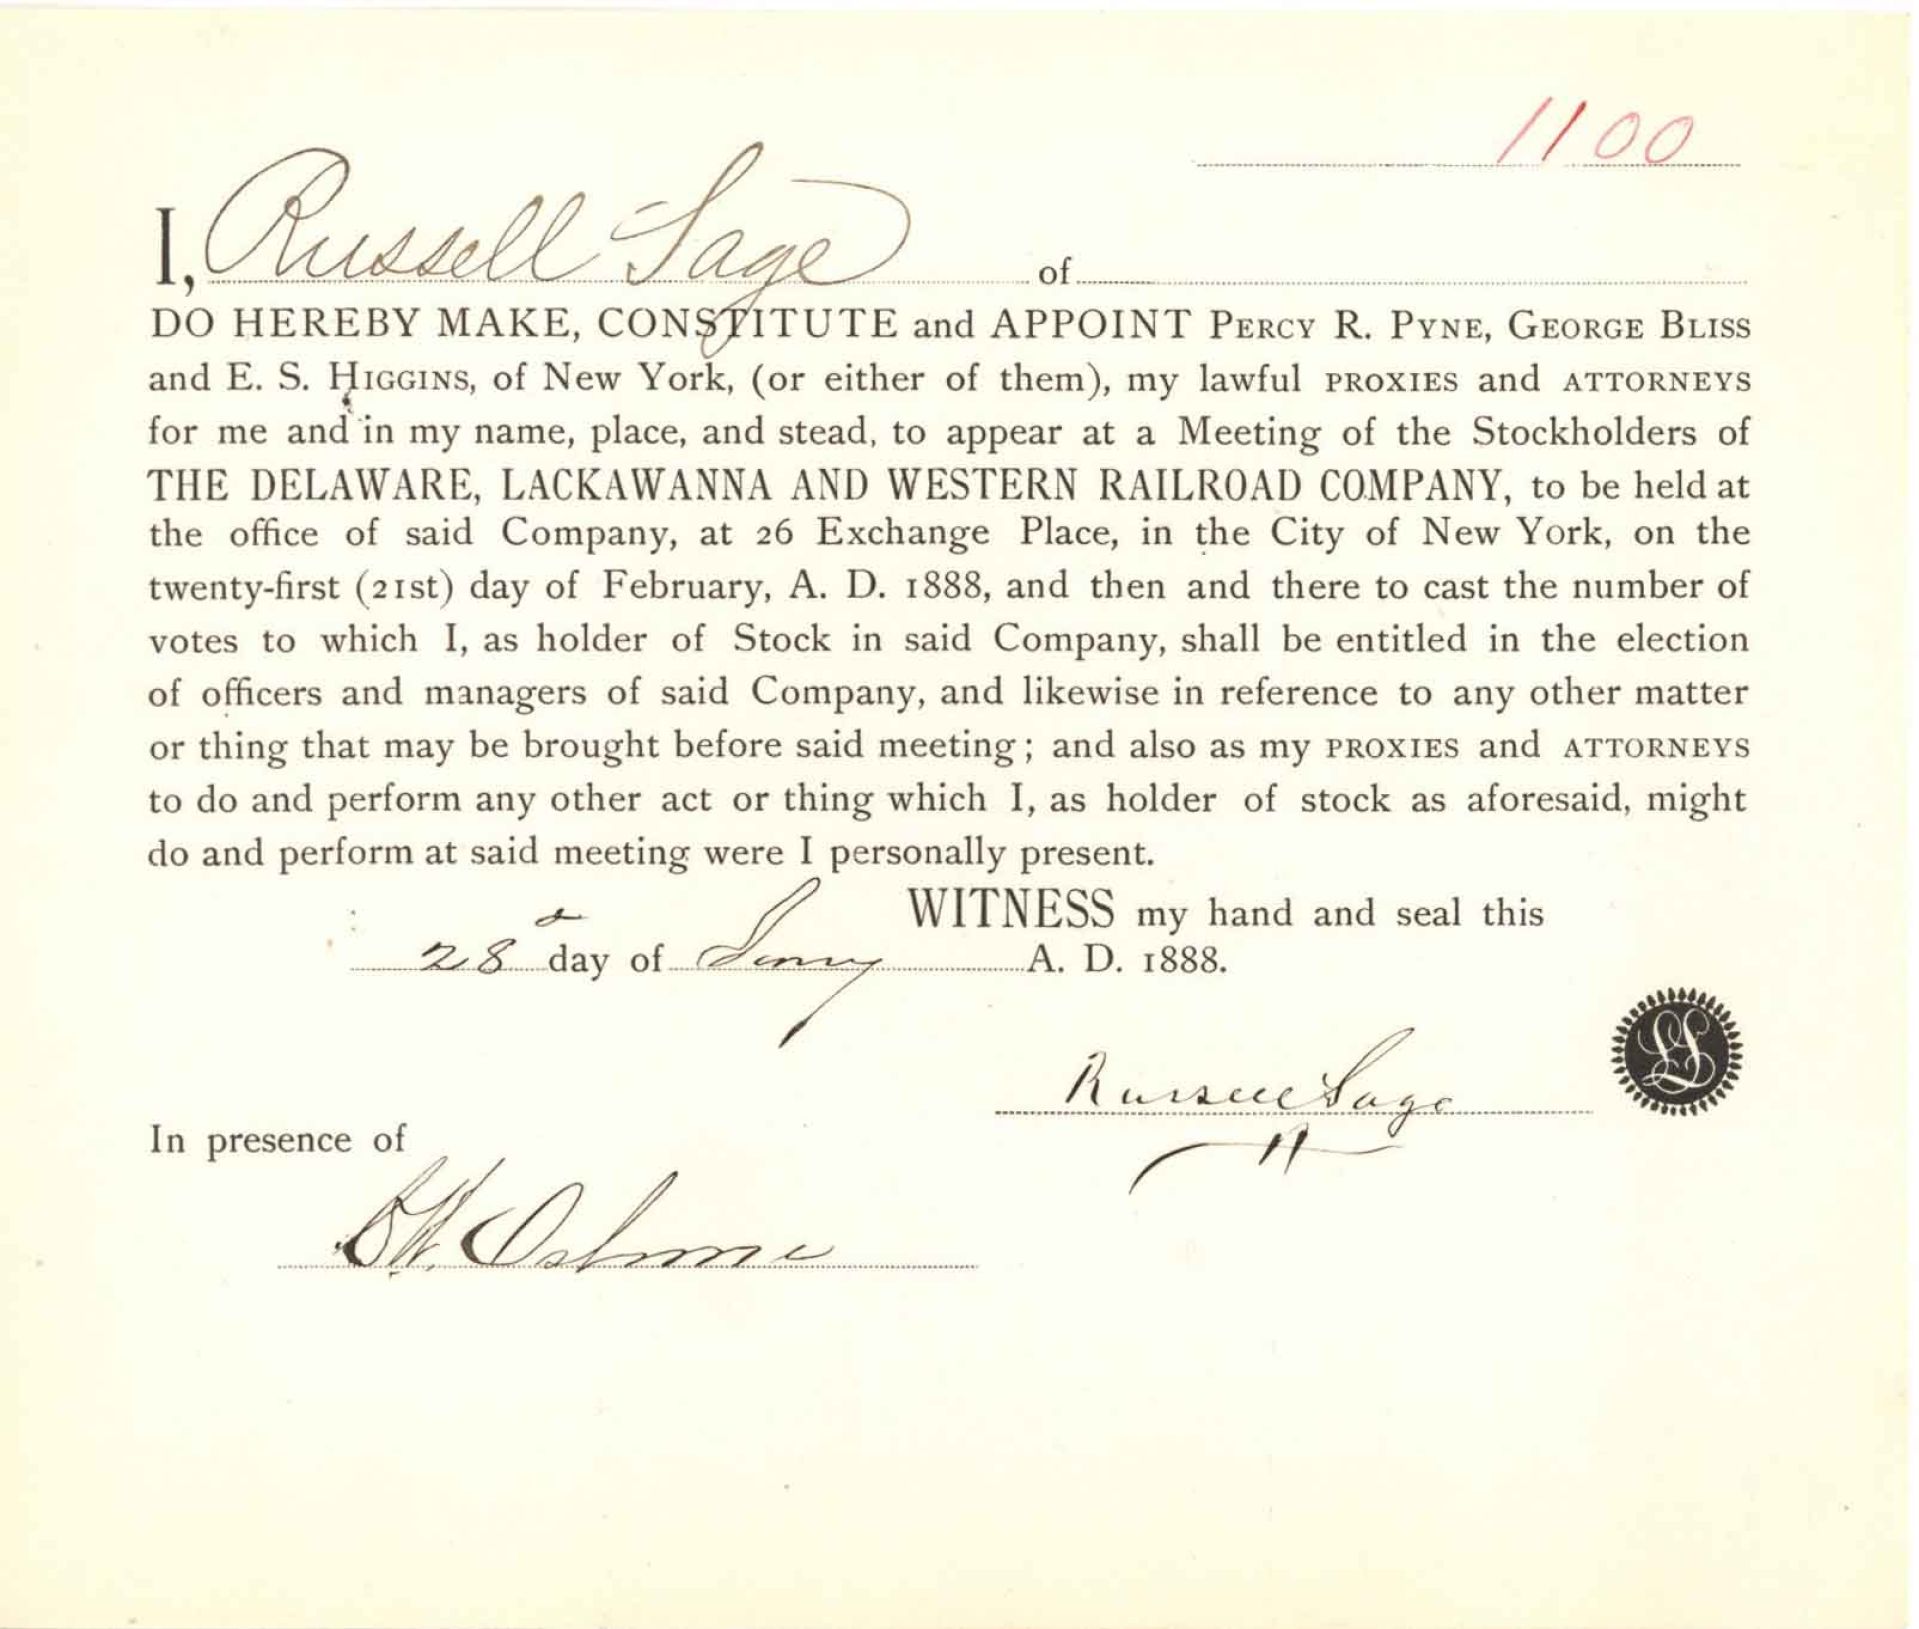 1100
I, Russell Sage of
DO HEREBY MAKE, CONSTITUTE and APPOINT PERCY R. PYNE, GEORGE BLISS
and E. S. HIGGINS, of New York, (or either of them), my lawful PROXIES and ATTORNEYS
for me and in my name, place, and stead, to appear at a Meeting of the Stockholders of
THE DELAWARE, LACKAWANNA AND WESTERN RAILROAD COMPANY, to be held at
the office of said Company, at 26 Exchange Place, in the City of New York, on the
twenty-first (21st) day of February, A. D. 1888, and then and there to cast the number of
votes to which I, as holder of Stock in said Company, shall be entitled in the election
of officers and managers of said Company, and likewise in reference to any other matter
or thing that may be brought before said meeting; and also as my PROXIES and ATTORNEYS
to do and perform any other act or thing which I, as holder of stock as aforesaid, might
do and perform at said meeting were I personally present.
WITNESS my hand and seal this
28 day of A. D. 1888.
Russell Sage
LS
In presence of
Osborne